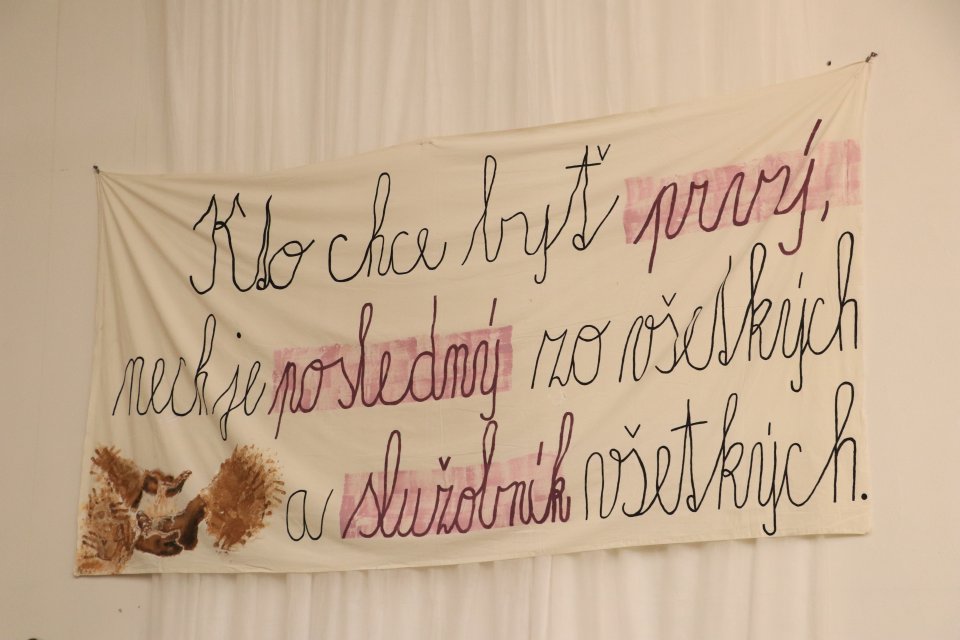 Kto chce byť prvý,
nech je posledný zo všetkých
a služobník všetkých.